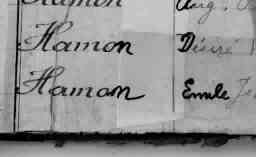 Hamon Aug.
Hamon Désiré
Hamon Emile